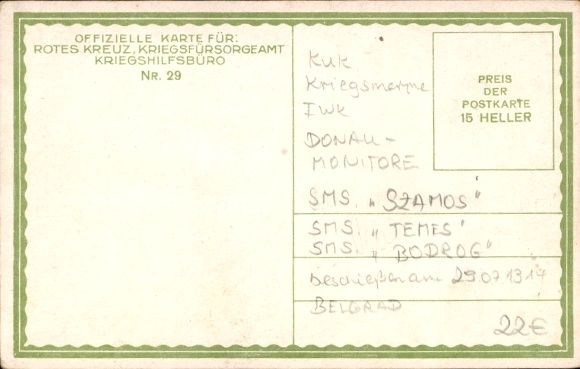 OFFIZIELLE KARTE FÜR:
ROTES KREUZ, KRIEGSFÜRSORGEAMT
KRIEGSHILFSBÜRO
NR. 29
PREIS
DER
POSTKARTE
15 HELLER
KuK
Kriegsmarine
I WK
DONAU-
MONITORE
SMS. „SZAMOS"
SMS. „TEMES"
SMS. „BODROG"
beschießen am 29.07.1914
BELGRAD
22€